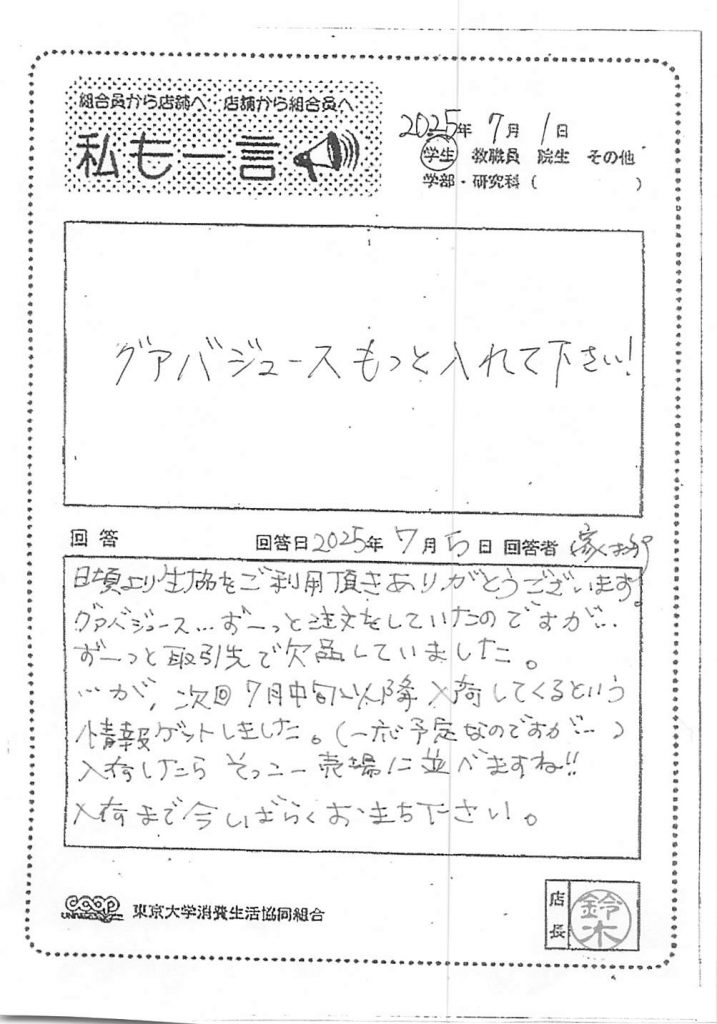 組合員から店舗へ 店舗から組合員へ
私も一言
2025年 7月 1日
学生 教職員 院生 その他
学部・研究科 ( )
グアバジュースもっと入れて下さい!
回答 回答日2025年 7月 5日 回答者
日頃より生協をご利用頂きありがとうございます。
グァバジュース…ずーっと注文をしていたのですが…
ずーっと取引先で欠品していました。
…が、次回7月中旬以降入荷してくるという
情報ゲットしました。(一応予定なのですが…)
入荷したらそっこー売場に並べますね!!
入荷まで今しばらくお待ち下さい。
coop
UNIVERSITY
東京大学消費生活協同組合
店長
鈴木